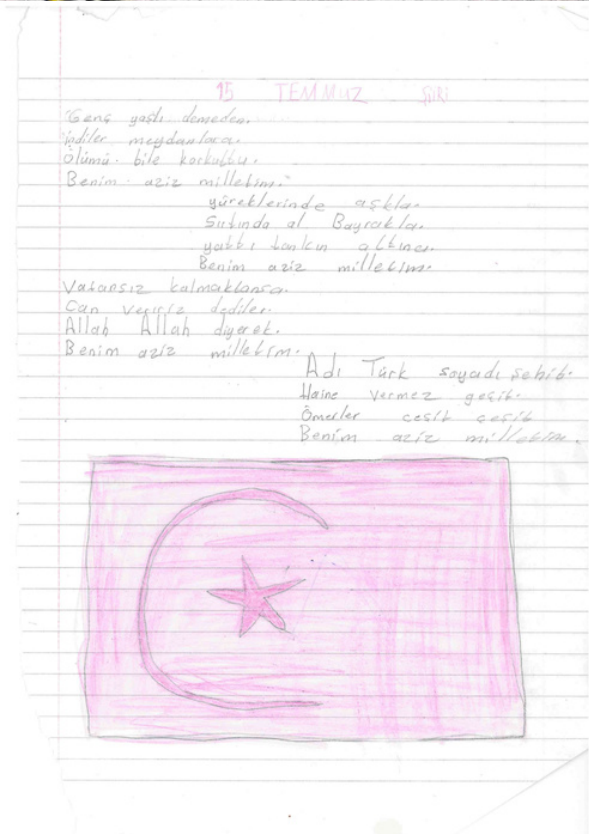 15 TEMMUZ ŞiiRi
"Genç yaşlı demeden.
indiler meydanlara.
Ölümü bile korkuttu.
Benim aziz milletim."
yüreklerinde aşkla.
Sırtında al Bayrakla.
yattı tankın altına.
Benim aziz milletim.
Vatansız kalmaktansa.
Can veririz dediler.
Allah Allah diyerek.
Benim aziz milletim.
Adı Türk soyadı şehit.
Haine vermez geçit.
Ömerler çeşit çeşit
Benim aziz milletim.